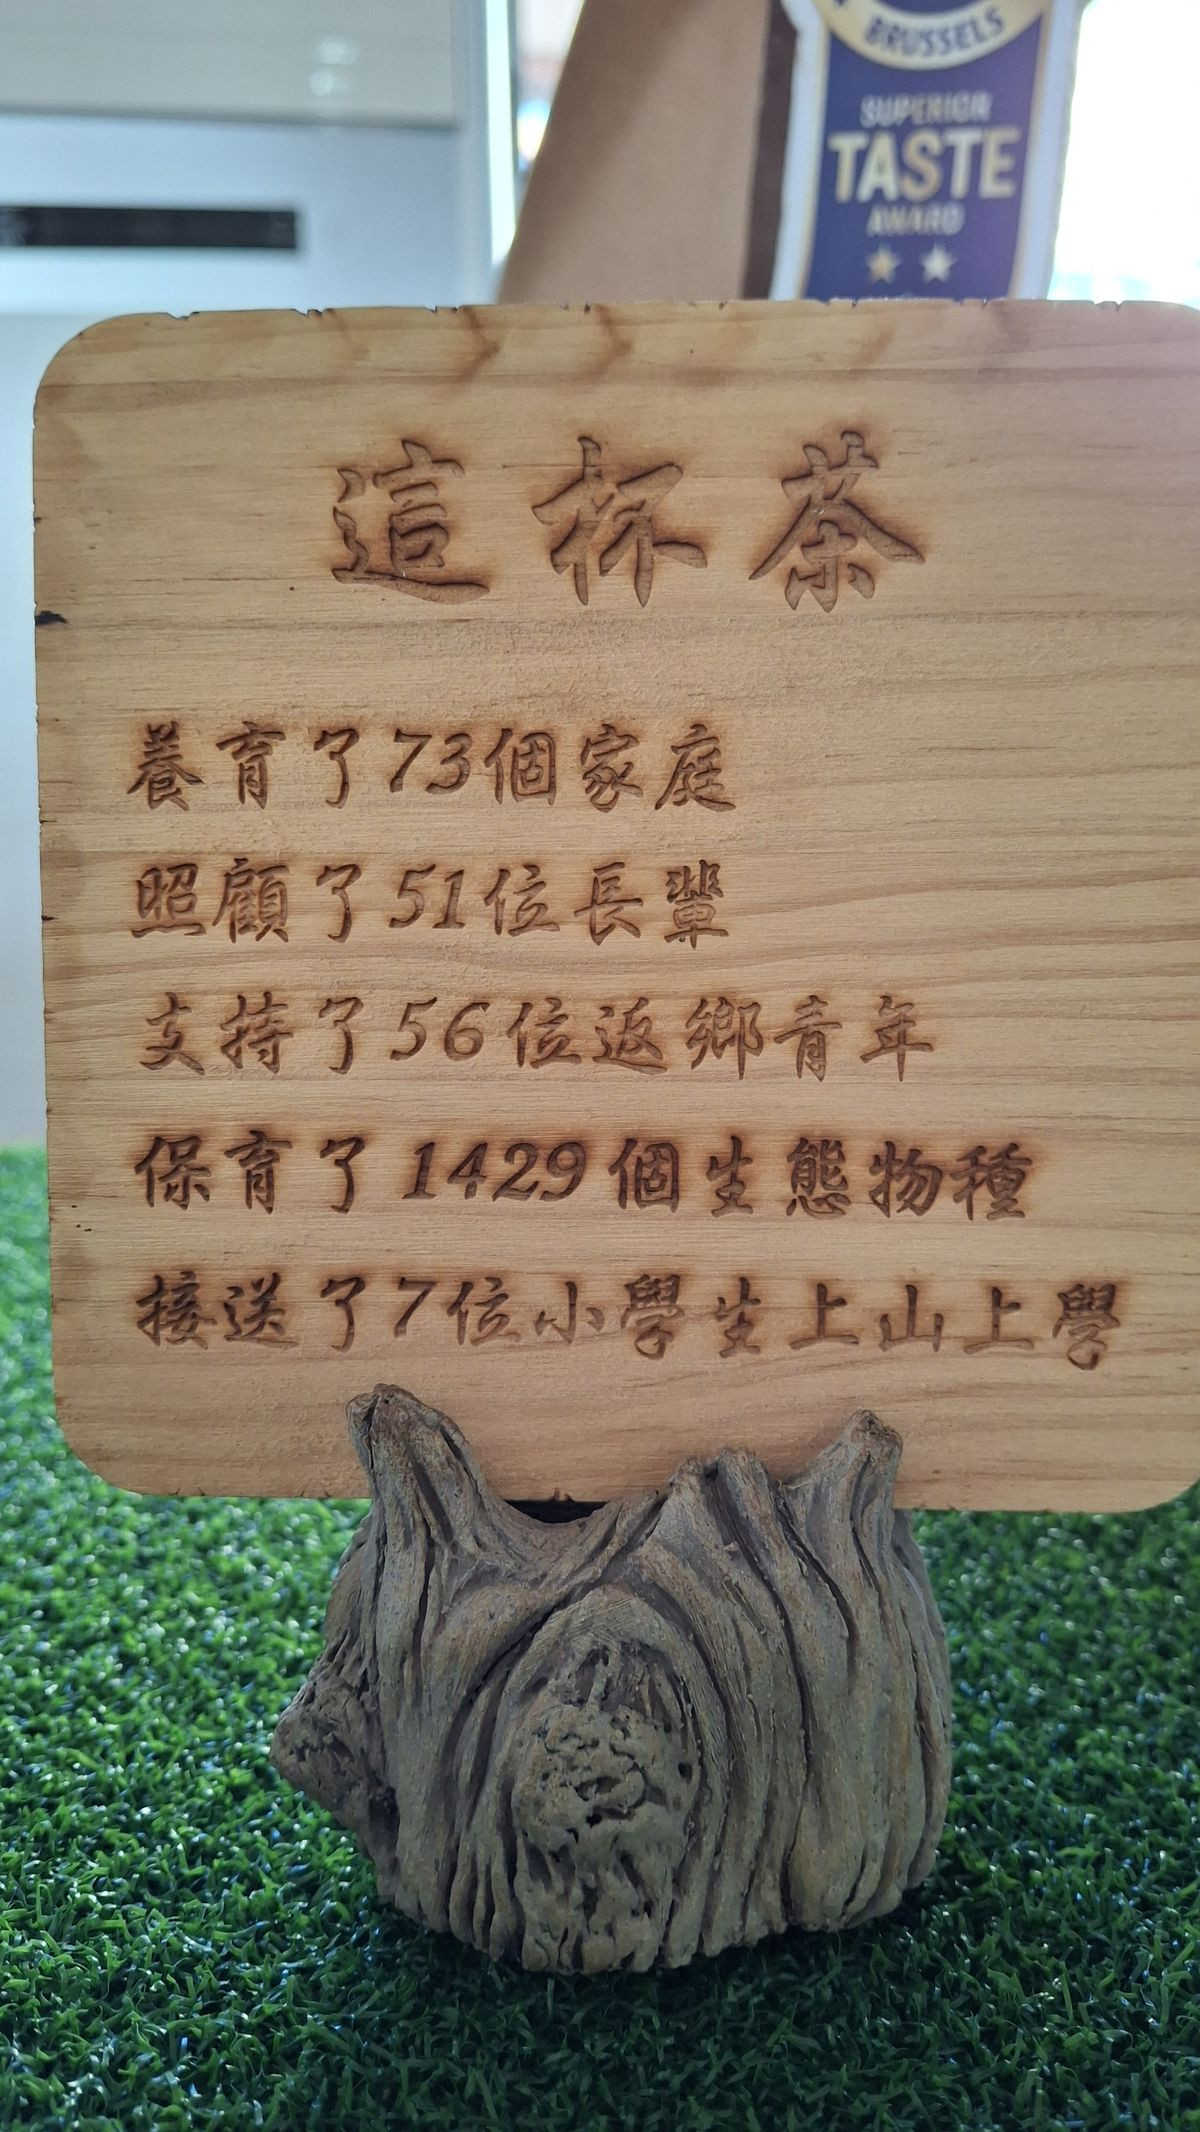 BRUSSELS
SUPERIOR
TASTE
AWARD
這杯茶
養育了73個家庭
照顧了51位長輩
支持了56位返鄉青年
保育了1429個生態物種
接送了7位小學生上山上學